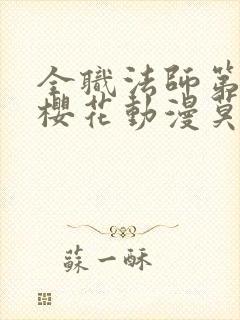 全職法師第
櫻花動漫莫
蘇一酥